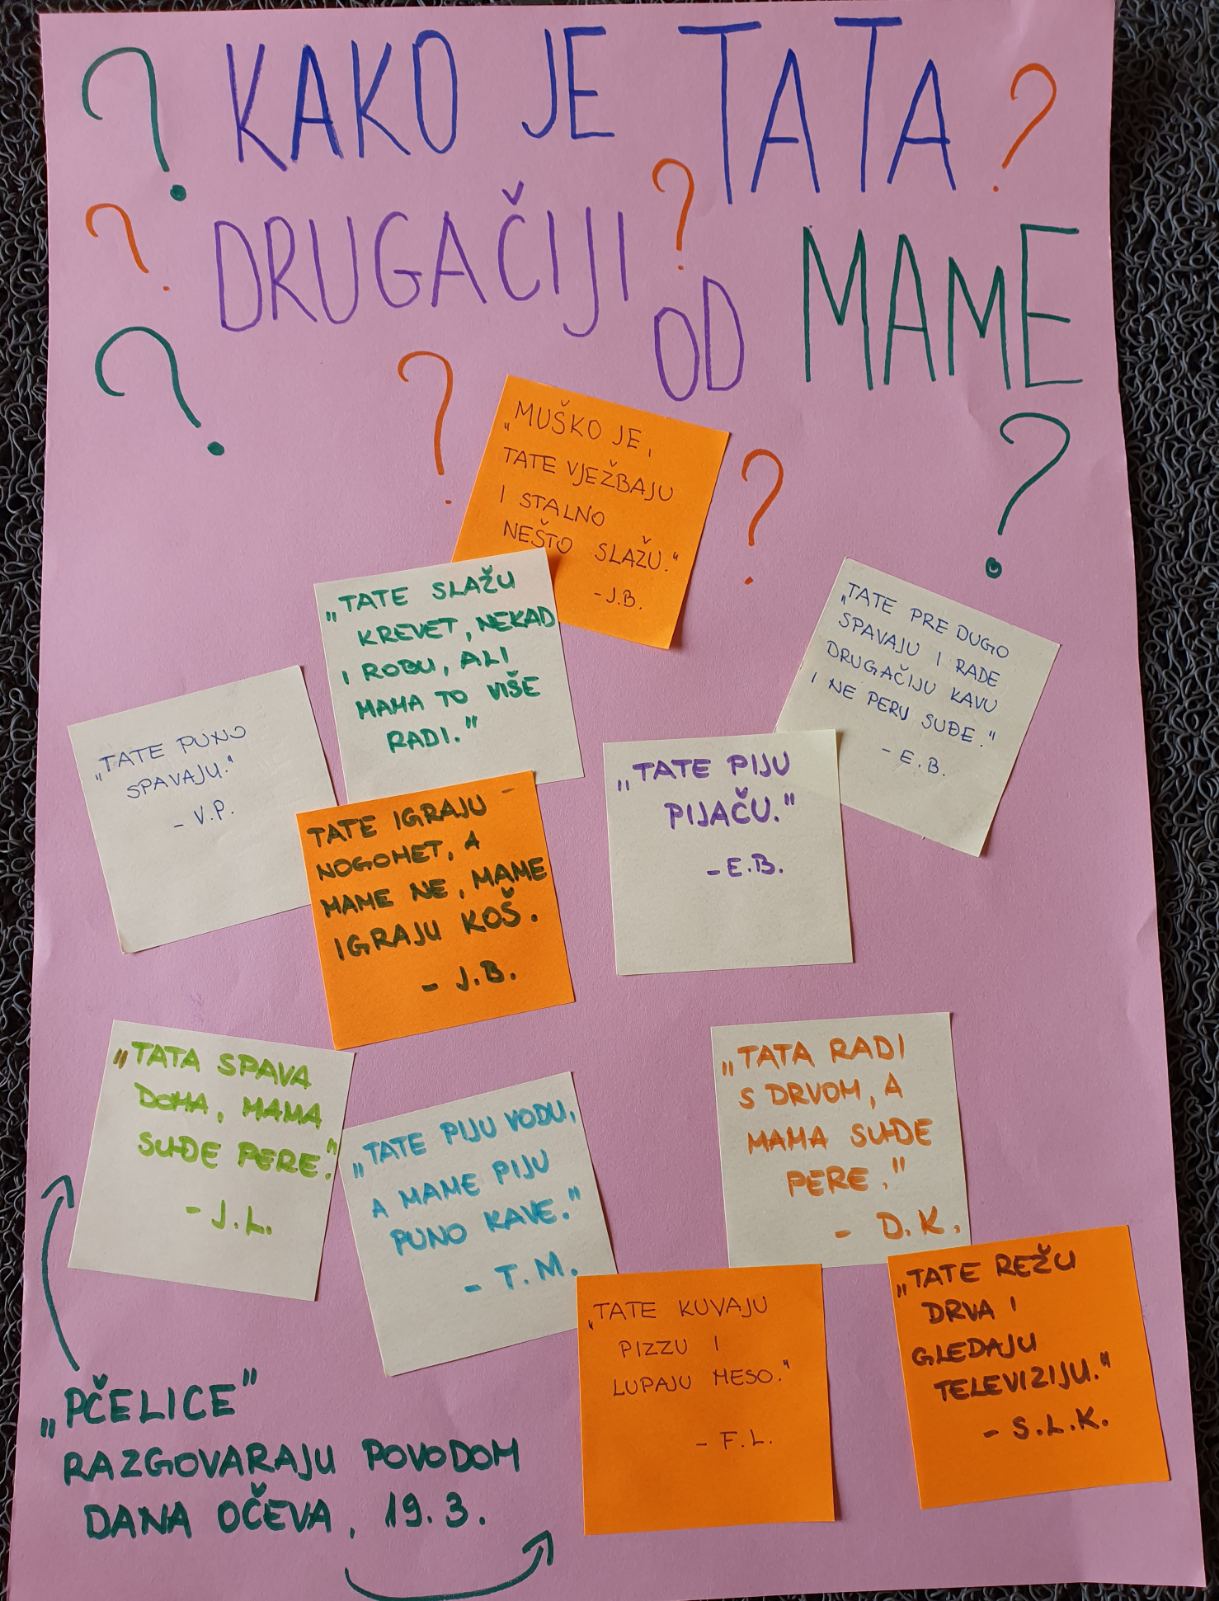 KAKO JE TATA
DRUGAČIJI OD MAME
„MUŠKO JE,
TATE VJEŽBAJU
I STALNO
NEŠTO SLAŽU."
-J.B.
„TATE SLAŽU
KREVET, NEKAD
I ROBU, ALI
MAMA TO VIŠE
RADI."
„TATE PRE DUGO
SPAVAJU I RADE
DRUGAČIJU KAVU
I NE PERU SUĐE."
- E.B.
„TATE PUNO
SPAVAJU."
- V.P.
„TATE PIJU
PIJAČU."
-E.B.
TATE IGRAJU
NOGOMET, A
MAME NE, MAME
IGRAJU KOŠ.
- J.B.
„TATA SPAVA
DOMA, MAMA
SUĐE PERE."
- J.L.
„TATE PIJU VODU,
A MAME PIJU
PUNO KAVE."
- T.M.
„TATA RADI
S DRVOM, A
MAMA SUĐE
PERE."
- D.K.
„TATE KUVAJU
PIZZU I
LUPAJU MESO."
- F.L.
„TATE REŽU
DRVA I
GLEDAJU
TELEVIZIJU."
- S.L.K.
„PČELICE"
RAZGOVARAJU POVODOM
DANA OČEVA, 19.3.